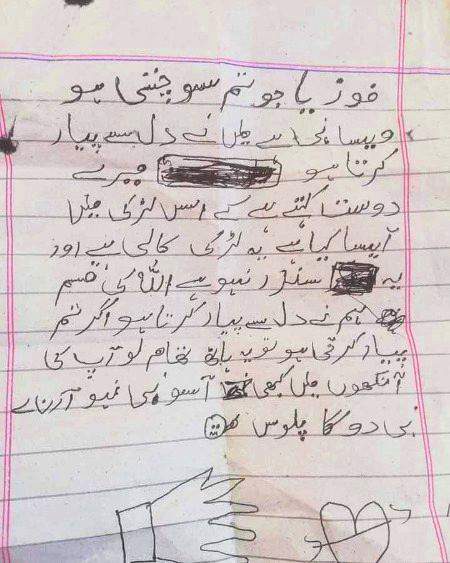 فوزیا جو تم سوچتی ہو
ویسا نہی ہے میں نے دل سے پیار
کرتا ہو میرے
دوست کہتے ہے کے اس لڑکی میں
آیسا کیا ہے یہ لڑکی کالی ہے اور
یہ سندر نہو ہے اللہ کی قسم
ہم نے دل سے پیار کرتا ہو اگر تم
پیار کرتی ہو تو یہ ہاتھ تھام لو آپ کی
آنکھوں میں کبھی آسو بی نیو آرنے
بی دو گا پلوس